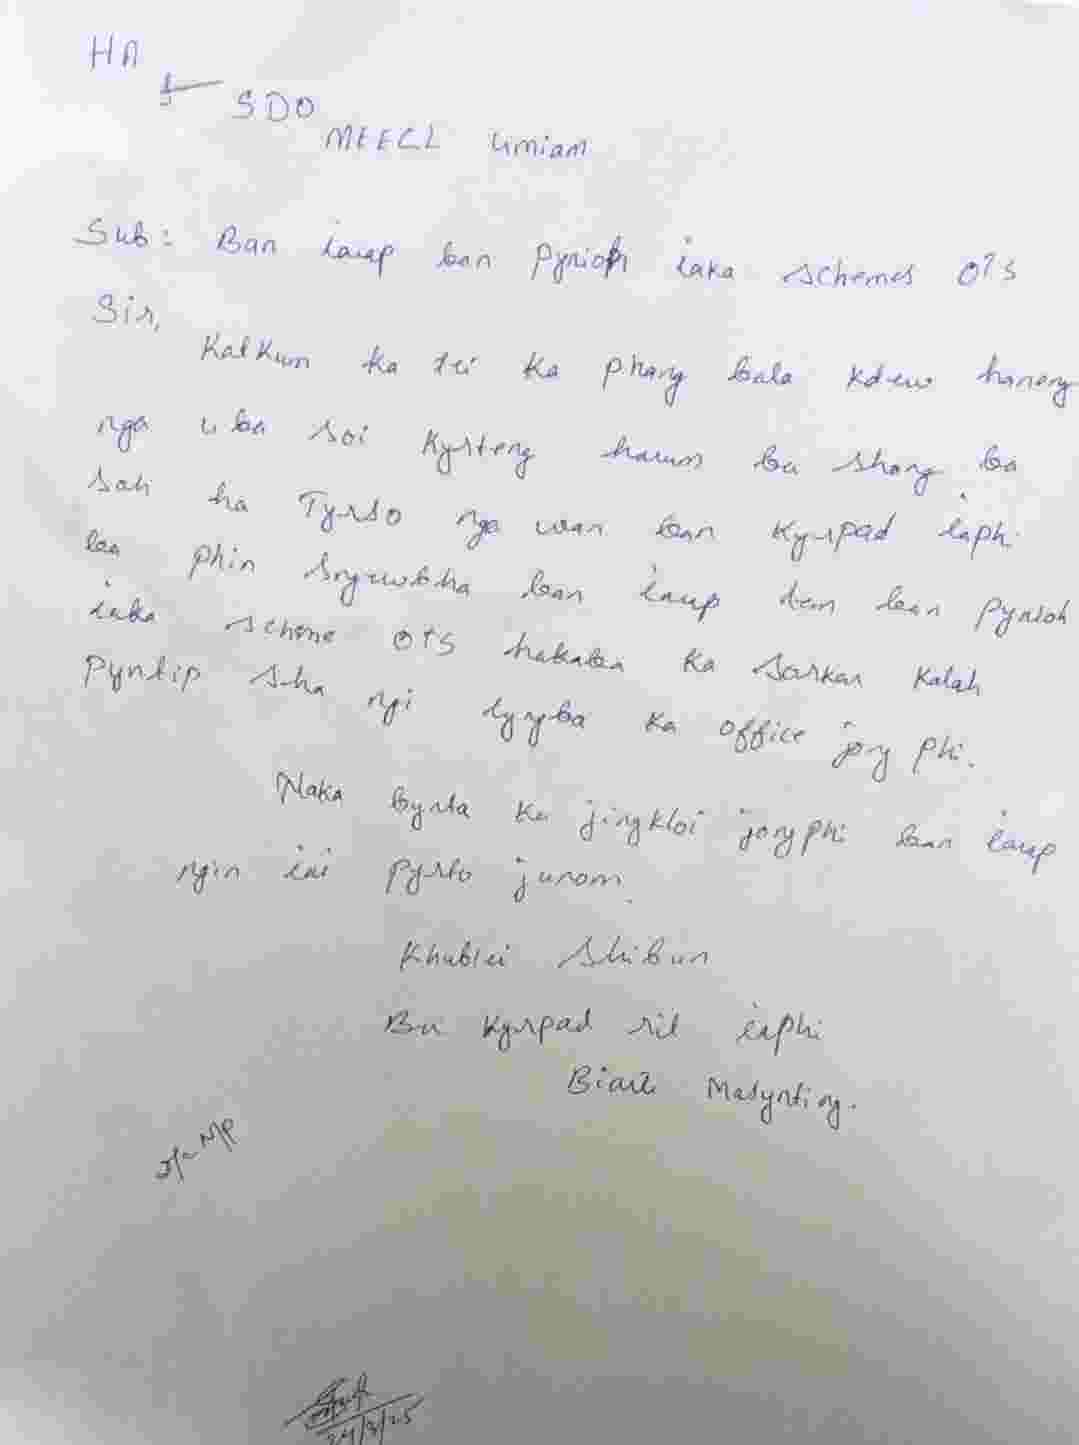 Ha
SDO
MEECL Umiam
Sub: Ban iarap ban pynioh iaka schemes OTS
Sir,
Katkum ka tei ka phang bala kdew haneng
nga uba soi kyrteng harum ba shong ba
sah ha Tyrso nga wan ban kyrpad iaphi
ba phin sngewbha ban iarap ban pynioh
iaka scheme OTS hakaba ka sarkar kalah
pyntip sha ngi lyngba ka office jong phi.
Naka bynta ka jingkloi jong phi ban iarap
ngin iai pynto junom.
Khublei Shibun
Ba kyrpad rit iaphi
Masynting.
24/3/25